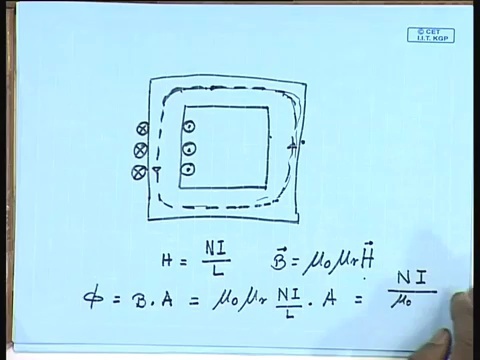 © CET
I.I.T. KGP
H = NI/L  B⃗ = μ₀μᵣH⃗
ϕ = B.A = μ₀μᵣ NI/L . A = NI/μ₀